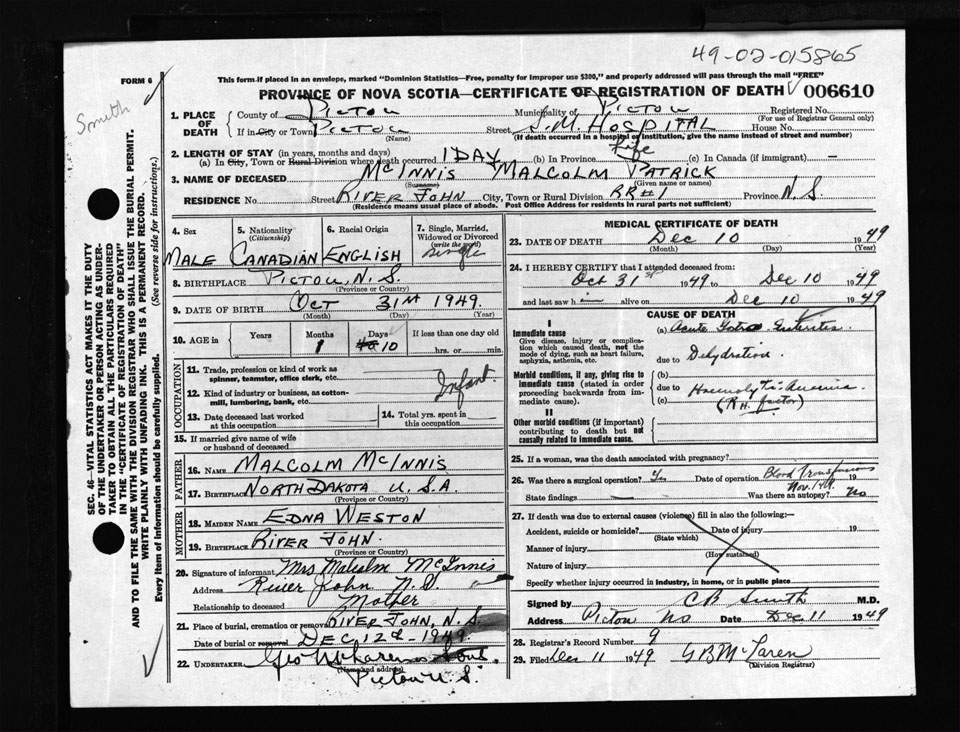 49-02-015865
FORM 6
This form if placed in an envelope, marked "Dominion Statistics—Free, penalty for improper use $300," and properly addressed will pass through the mail "FREE"
PROVINCE OF NOVA SCOTIA—CERTIFICATE OF REGISTRATION OF DEATH 006610
Smith
SEC. 46—VITAL STATISTICS ACT MAKES IT THE DUTY
OF THE UNDERTAKER OR PERSON ACTING AS UNDER-
TAKER TO OBTAIN ALL THE PARTICULARS REQUIRED
IN THE "CERTIFICATE OF REGISTRATION OF DEATH"
AND TO FILE THE SAME WITH THE DIVISION REGISTRAR WHO SHALL ISSUE THE BURIAL PERMIT.
WRITE PLAINLY WITH UNFADING INK. THIS IS A PERMANENT RECORD.
Every item of Information should be carefully supplied. (See reverse side for instructions.)
1. PLACE OF DEATH County of PICTOU Municipality of PICTOU Registered No.
(For use of Registrar General only)
If in City or Town PICTOU Street S.M. HOSPITAL House No.
(Name) (If death occurred in a hospital or institution, give the name instead of street and number)
2. LENGTH OF STAY (in years, months and days)
(a) In City, Town or Rural Division where death occurred 1 DAY (b) In Province Life (c) In Canada (if immigrant) —
3. NAME OF DECEASED McINNIS MALCOLM PATRICK
(Surname) (Given name or names)
RESIDENCE No. Street RIVER JOHN City, Town or Rural Division RR#1 Province N.S.
(Residence means usual place of abode. Post Office Address for residents in rural parts not sufficient)
4. Sex MALE
5. Nationality (Citizenship) CANADIAN
6. Racial Origin ENGLISH
7. Single, Married, Widowed or Divorced (write the word) Single
8. BIRTHPLACE PICTOU, N.S.
(Province or Country)
9. DATE OF BIRTH OCT 31st 1949.
(Month) (Day) (Year)
10. AGE in Years Months 1 Days 10 If less than one day old
hrs. or min.
OCCUPATION
11. Trade, profession or kind of work as
spinner, teamster, office clerk, etc. Infant
12. Kind of industry or business, as cotton-
mill, lumbering, bank, etc.
13. Date deceased last worked
at this occupation
14. Total yrs. spent in
this occupation
15. If married give name of wife
or husband of deceased
FATHER
16. NAME MALCOLM McINNIS
17. BIRTHPLACE NORTH DAKOTA U.S.A.
(Province or Country)
MOTHER
18. MAIDEN NAME EDNA WESTON
19. BIRTHPLACE RIVER JOHN.
(Province or Country)
20. Signature of informant Mrs Malcolm McInnis
Address River John N.S.
Relationship to deceased Mother
21. Place of burial, cremation or removal RIVER JOHN, N.S.
Date of burial or removal DEC 12th - 1949.
22. UNDERTAKER Geo
(Name and address)
Pictou N.S.
MEDICAL CERTIFICATE OF DEATH
23. DATE OF DEATH Dec 10 1949
(Month) (Day) (Year)
24. I HEREBY CERTIFY that I attended deceased from:
Oct 31st 1949 to Dec 10 1949
and last saw h— alive on Dec 10 1949
CAUSE OF DEATH
I
Immediate cause
Give disease, injury or complica-
tion which caused death, not the
mode of dying, such as heart failure,
asphyxia, asthenia, etc.
(a) Acute Gastro Enteritis.
due to Dehydration
Morbid conditions, if any, giving rise to
immediate cause (stated in order
proceeding backwards from im-
mediate cause).
(b)
due to Haemolytic Anaemia
(c) (RH. factor)
II
Other morbid conditions (if important)
contributing to death but not
causally related to immediate cause.
25. If a woman, was the death associated with pregnancy?
26. Was there a surgical operation? Yes Date of operation Blood Transfusions Nov. 1949. 19
State findings — Was there an autopsy? No
27. If death was due to external causes (violence) fill in also the following:—
Accident, suicide or homicide? Date of injury 19
(State which)
Manner of injury
(How sustained)
Nature of injury
Specify whether injury occurred in industry, in home, or in public place
Signed by CB Smith M.D.
Address Pictou NS Date Dec 11 1949
28. Registrar's Record Number 9
29. Filed Dec 11 1949 GB McLaren
(Division Registrar)